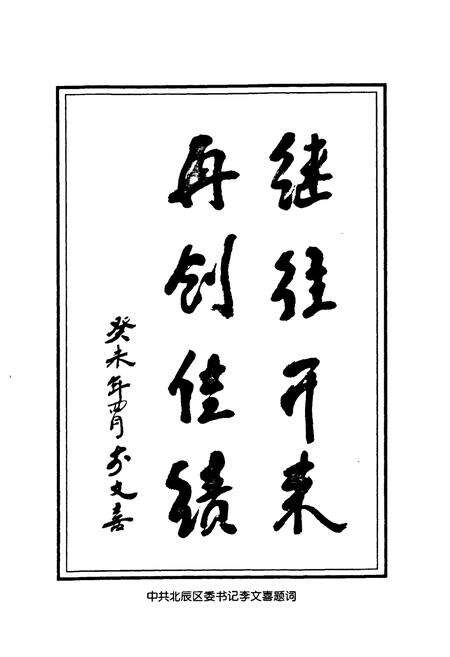 继往开来
再创佳绩
癸未年四月李文喜
中共北辰区委书记李文喜题词